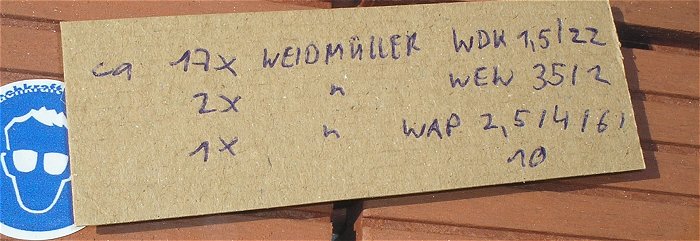 ca 17x WEIDMÜLLER WDK 1,5/22
2x " WEW 35/2
1x " WAP 2,5/4/6/
10